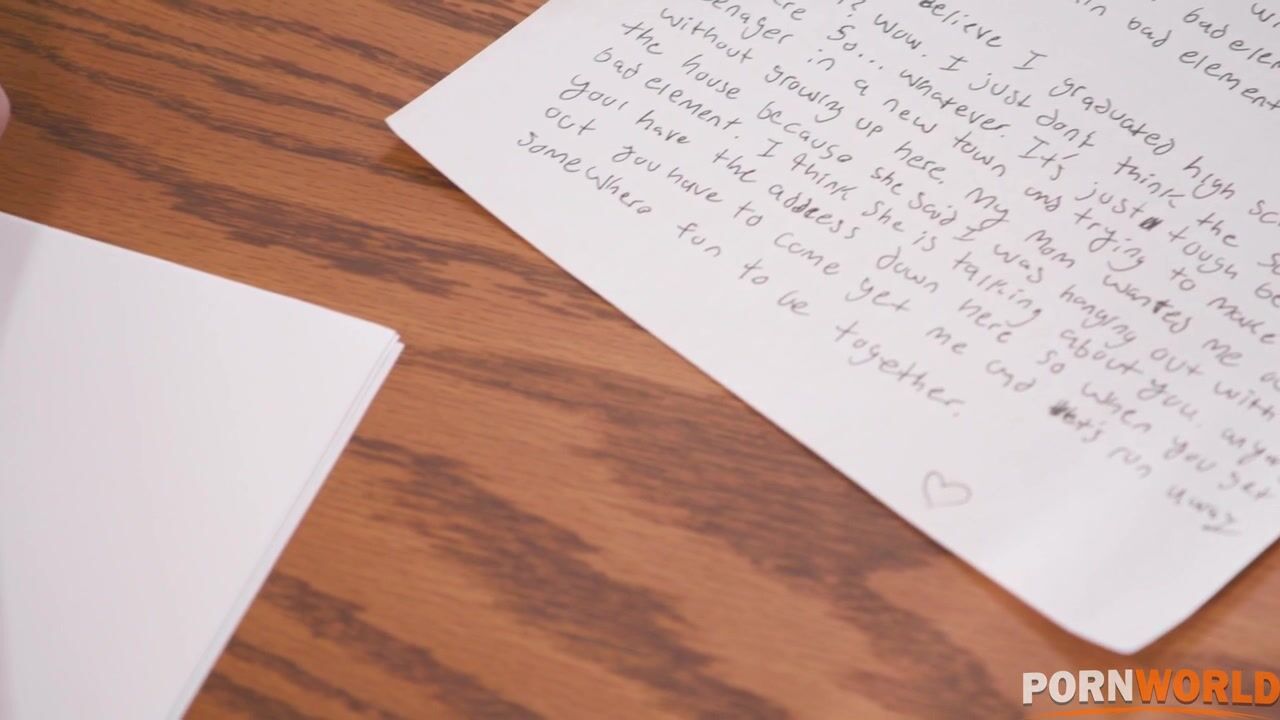 wi
bad elem
in bad element
Believe I graduated high sc
? wow. I just don't think the s
so... whatever. It's just tough be
enager in a new town and trying to make
without growing up here. My Mom wanted me
the house because she said I was hanging out with
bad element. I think she is talking about you. anyw
your have the address down here so when you get
out you have to come get me and let's run away
Somewhere fun to be together.
♡
PORNWORLD